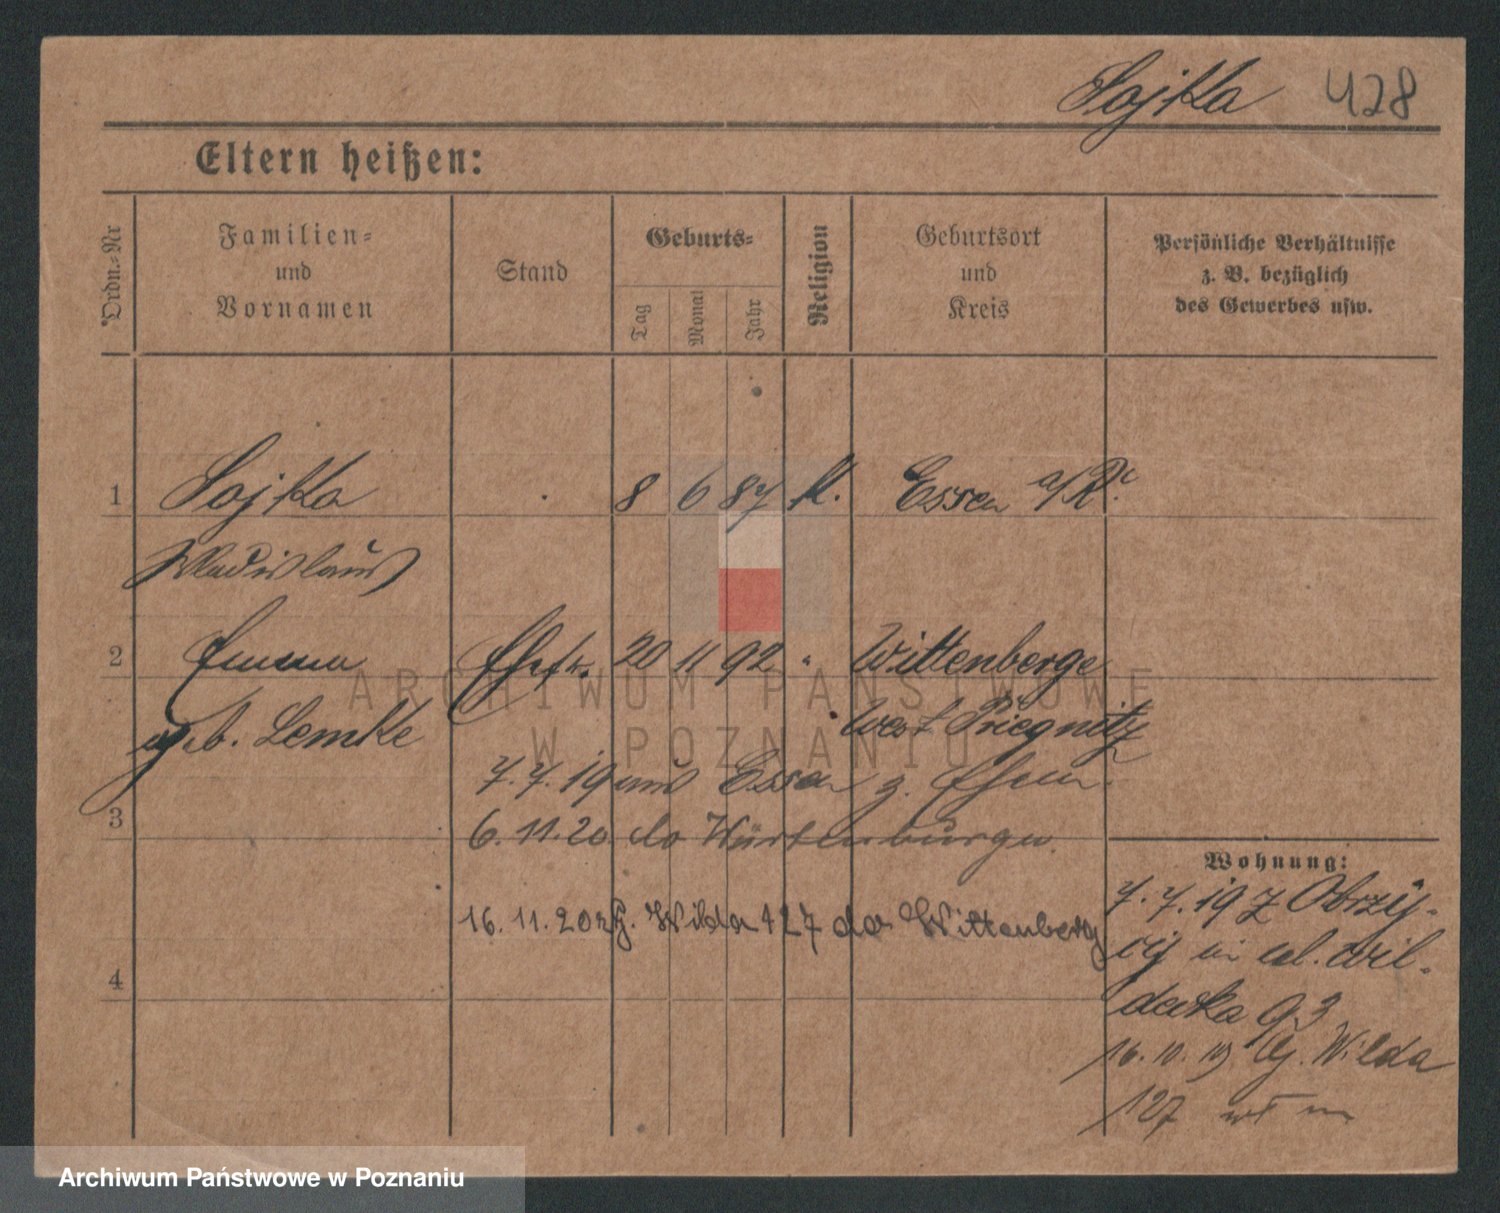 Sojka 428
Eltern heißen:
Ordn.-Nr
Familien-
und
Vornamen
Stand
Geburts-
Tag
Monat
Jahr
Religion
Geburtsort
und
Kreis
Persönliche Verhältnisse
z. B. bezüglich
des Gewerbes usw.
1 Sojka 8 6 87 k. Essen a/R.
Wladislaus
2 Emma Ehefr. 20 11 92 " Wittenberge
geb. Lemke West Priegnitz
7. 7. 19 aus Essen z.
3
6. 11. 20 do
16. 11. 20 Wilda 127 do Wittenberg
4
Wohnung:
7. 7. 19
wil-
derska 93
16. 10. 19 Wilda
127
ARCHIWUM PAŃSTWOWE
W POZNANIU
Archiwum Państwowe w Poznaniu